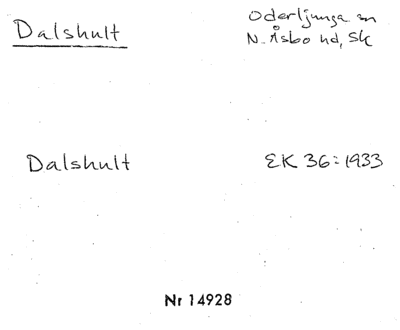 Dalshult
Oderljunga sn
N. Åsbo hd, Sk
Dalshult
EK 36:1933
Nr 14928